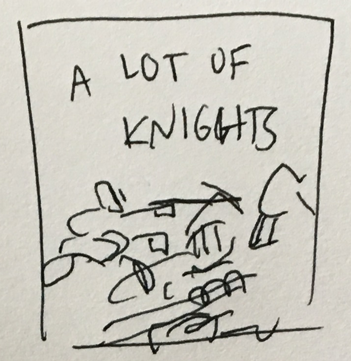 A LOT OF
KNIGHTS